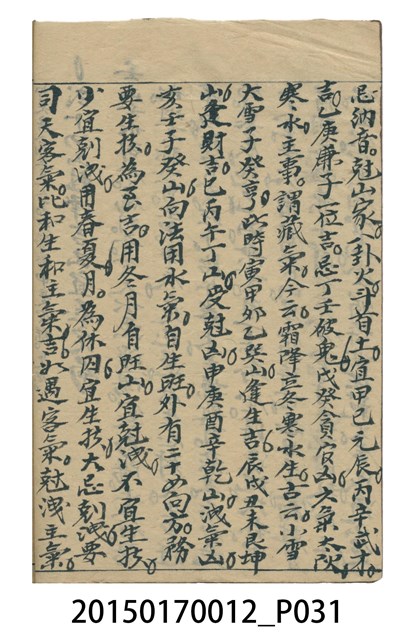 忌納音。尅山家。卦火斗首土宜甲巳元辰丙辛武才
吉。乙庚廉子一位吉。忌丁壬破鬼戊癸貪官山大氣太陰
寒水主事。謂藏氣。今云霜降立冬寒水生。古云小雪
大雪子癸亨。此時寅甲卯乙巽山逢生吉。辰戌丑未艮坤
山逢財吉。巳丙午丁山受尅凶。申庚酉辛乾山洩氣凶。
亥壬子癸山向法用水氣自生旺。外有二十四向芳務
要生扶為至吉。用冬月自旺山宜尅洩。不宜生扶。
少宜尅洩。用春夏月。為休囚宜生扶。大忌尅洩。要
司天客氣。比和生和主氣吉。如遇客氣。尅洩主氣。
20150170012_P031